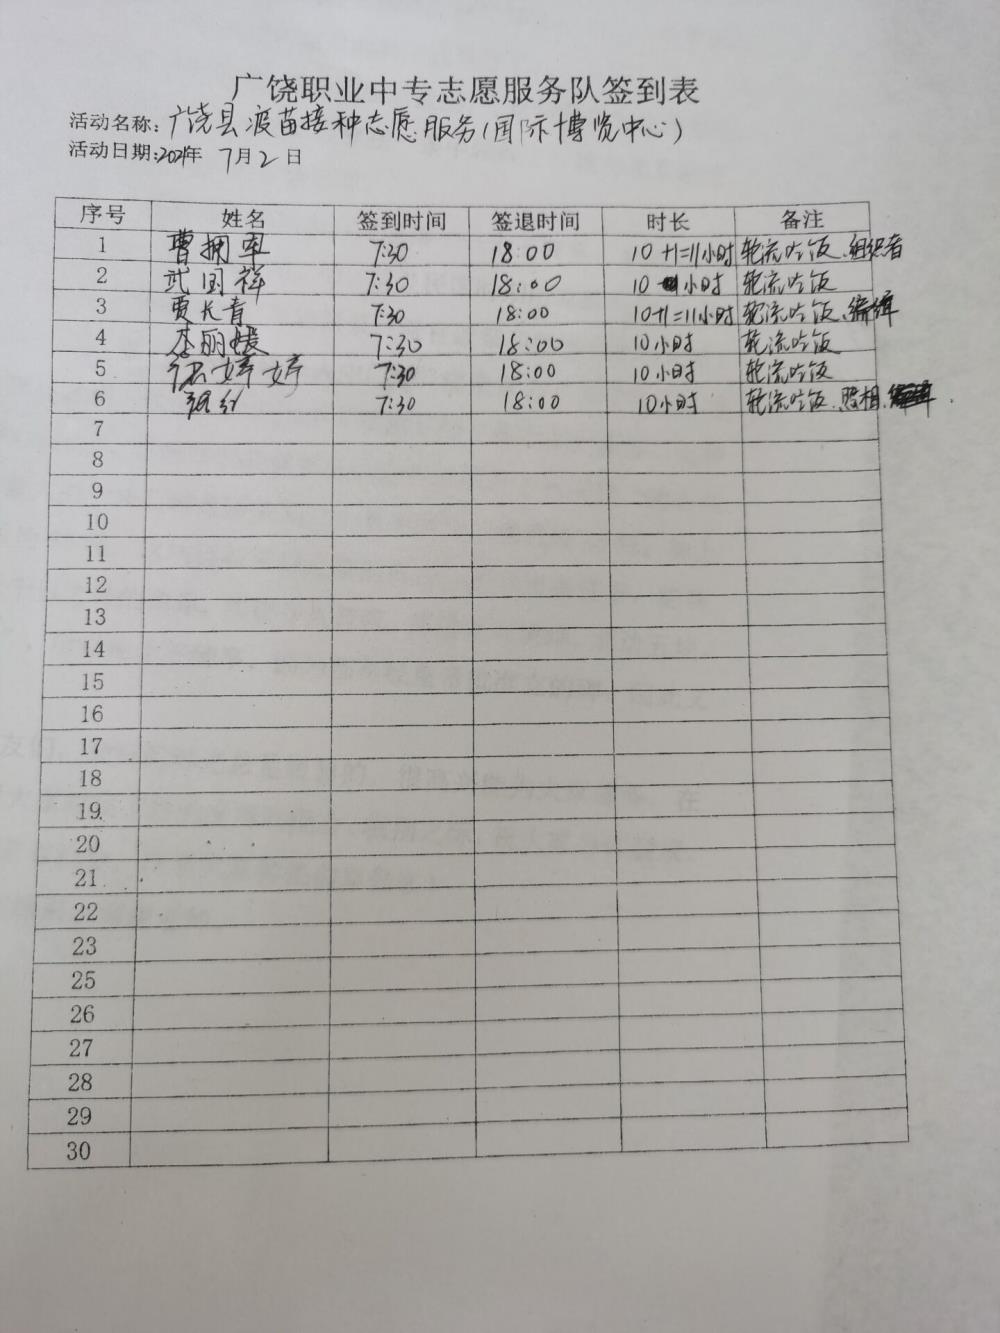 广饶职业中专志愿服务队签到表
活动名称：广饶县疫苗接种志愿服务（国际博览中心）
活动日期：2021年 7月2日
序号 姓名 签到时间 签退时间 时长 备注
1 曹拥军 7:30 18:00 10+1=11小时 轮流吃饭、组织者
2 武国祥 7:30 18:00 10 小时 轮流吃饭
3 贾长青 7:30 18:00 10+1=11小时 轮流吃饭、编辑
4 李丽媛 7:30 18:00 10小时 轮流吃饭
5 张婷婷 7:30 18:00 10小时 轮流吃饭
6 7:30 18:00 10小时 轮流吃饭、照相、
7
8
9
10
11
12
13
14
15
16
17
18
19
20
21
22
23
25
26
27
28
29
30